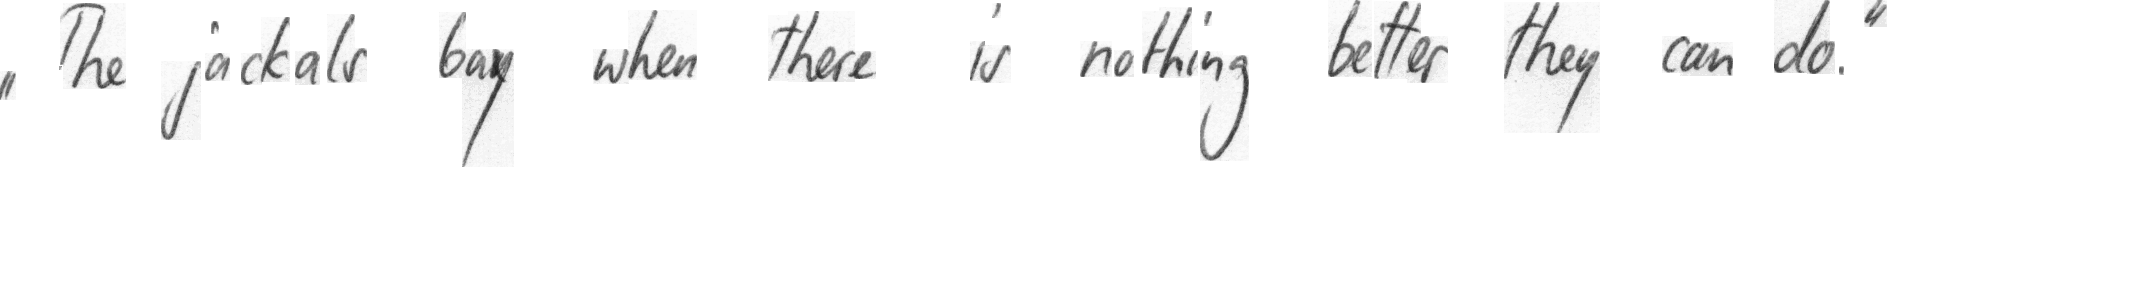 „The jackals bay when there is nothing better they can do.“